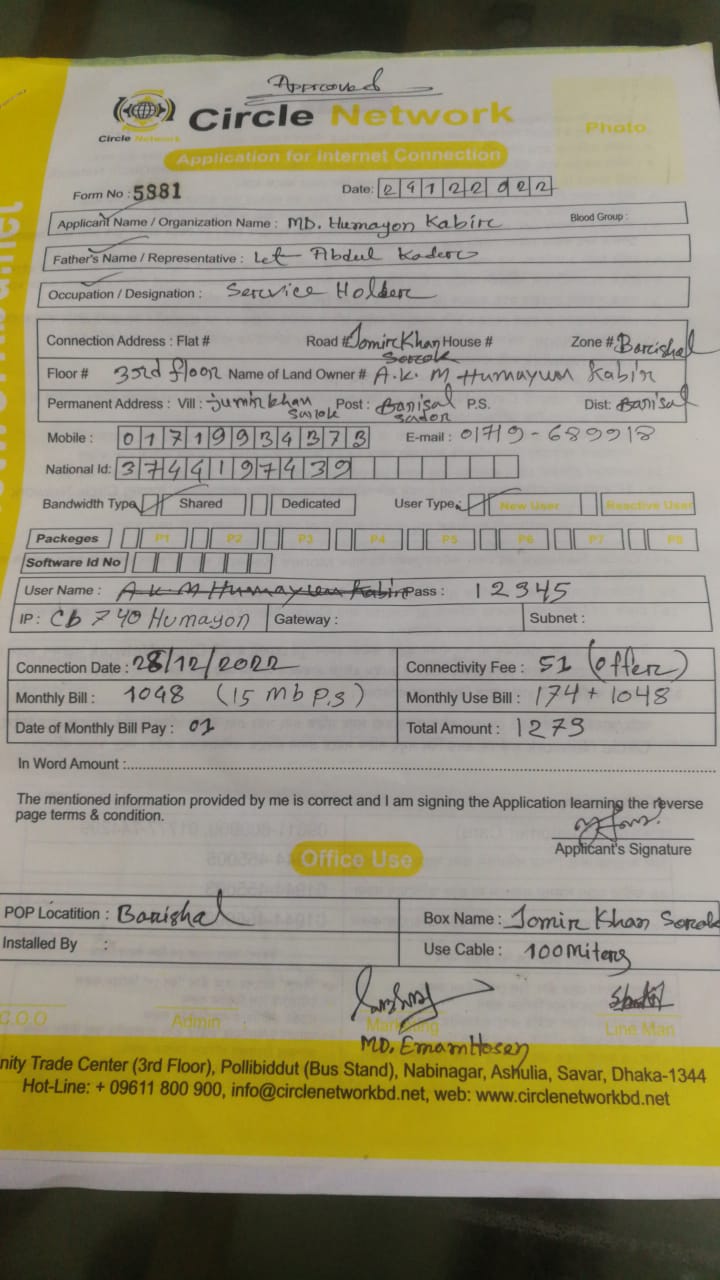 Approved
Circle Network
Circle Network
Photo
Application for Internet Connection
Form No : 5981 Date: 29122022
Applicant Name / Organization Name : MD. Humayon Kabir Blood Group :
Father's Name / Representative : Let Abdul Kader
Occupation / Designation : Service Holder
Connection Address : Flat # Road # Jomir Khan Sorok House # Zone # Barishal
Floor # 3rd floor Name of Land Owner # A.K. M Humayun Kabir
Permanent Address : Vill : Jumir khan Sarok Post : Barisal Sador P.S. Dist: Barisal
Mobile : 01719934373 E-mail : 01719-689918
National Id: 3744197439
Bandwidth Type Shared Dedicated User Type New User Reactive User
Packeges P1 P2 P3 P4 P5 P6 P7 P8
Software Id No
User Name : A.K.M Humayun Kabir Pass : 12345
IP : Cb740Humayon Gateway : Subnet :
Connection Date : 28/12/2022 Connectivity Fee : 51 (offer)
Monthly Bill : 1048 (15 mbp.s) Monthly Use Bill : 174 + 1048
Date of Monthly Bill Pay : 01 Total Amount : 1273
In Word Amount :
The mentioned information provided by me is correct and I am signing the Application learning the reverse
page terms & condition.
Applicant's Signature
Office Use
POP Locatition : Barishal Box Name : Jomir Khan Sorok
Installed By : Use Cable : 100Miters
C.O.O Admin Marketing Line Man
MD. Emam Hosen
nity Trade Center (3rd Floor), Pollibiddut (Bus Stand), Nabinagar, Ashulia, Savar, Dhaka-1344
Hot-Line: + 09611 800 900, info@circlenetworkbd.net, web: www.circlenetworkbd.net